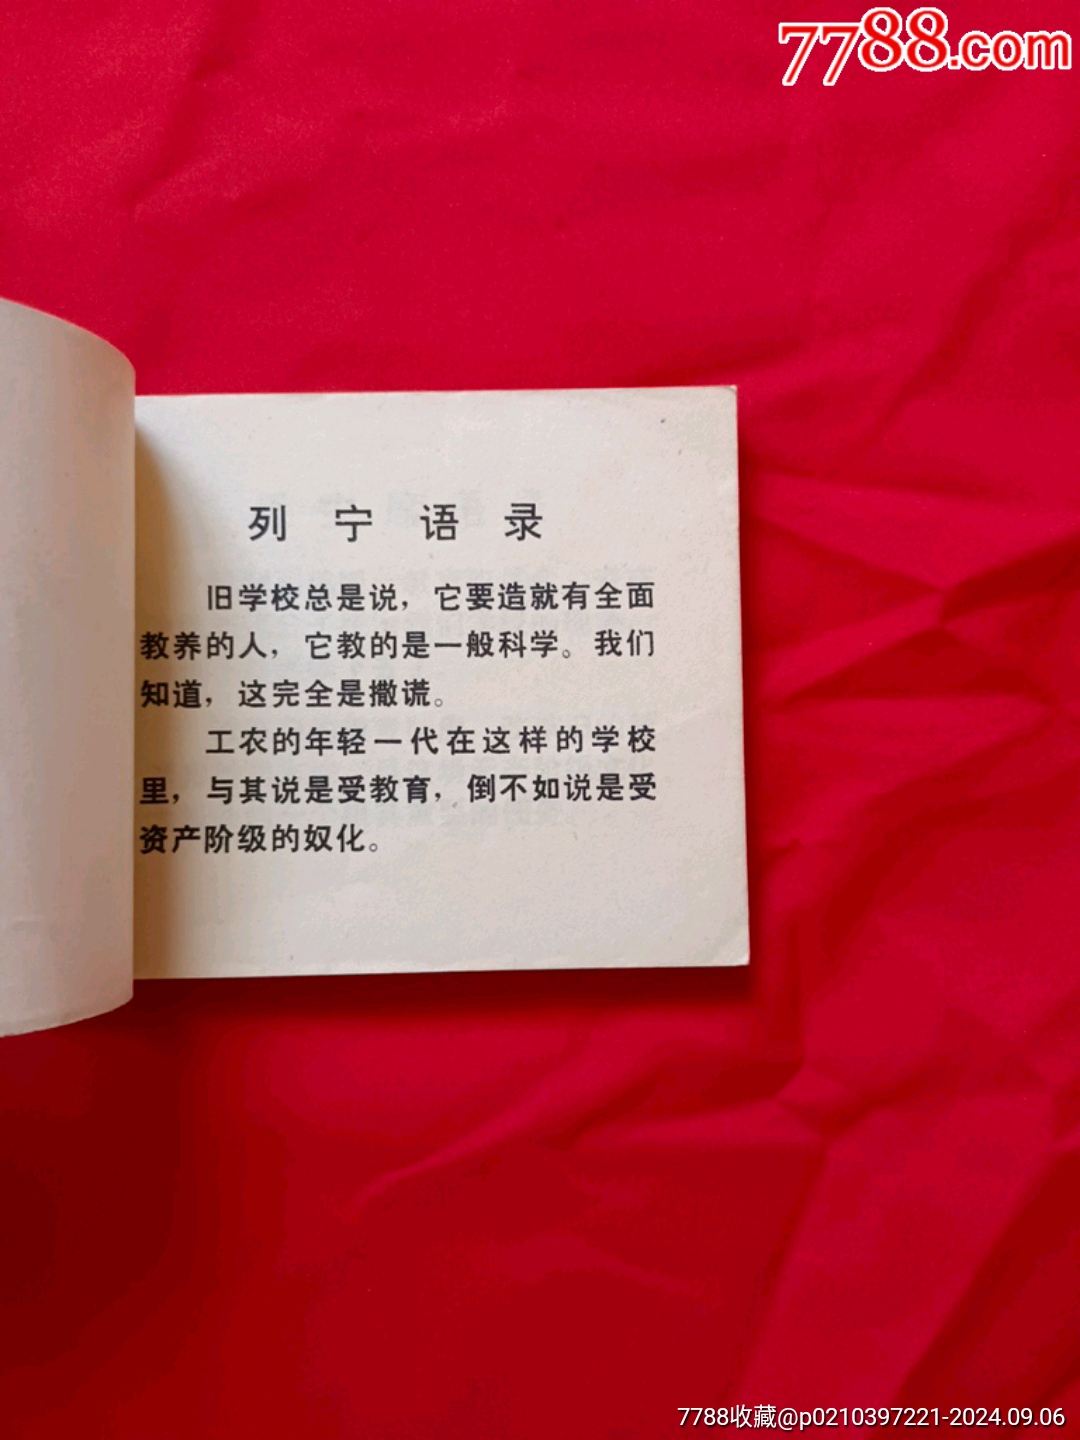 7788.com
列宁语录
旧学校总是说，它要造就有全面
教养的人，它教的是一般科学。我们
知道，这完全是撒谎。
工农的年轻一代在这样的学校
里，与其说是受教育，倒不如说是受
资产阶级的奴化。
7788收藏@p0210397221-2024.09.06